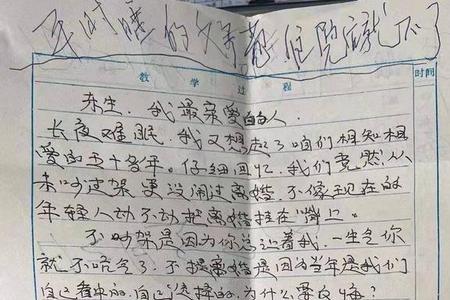 时睡的
住院就不了
教 学 过 程
时间
东生,我最亲爱的人。
长夜难眠,我又想起了咱们相知相
爱的五十多年。仔细回忆,我们竟然从
未吵过架更没闹过离婚,不像现在的
年轻人动不动把离婚挂在嘴上。
不吵架是因为你总让着我,一生气你
就不吭气了;不提离婚是因为当年是我们
自己看中的,自己选择的,为什么要文悔?